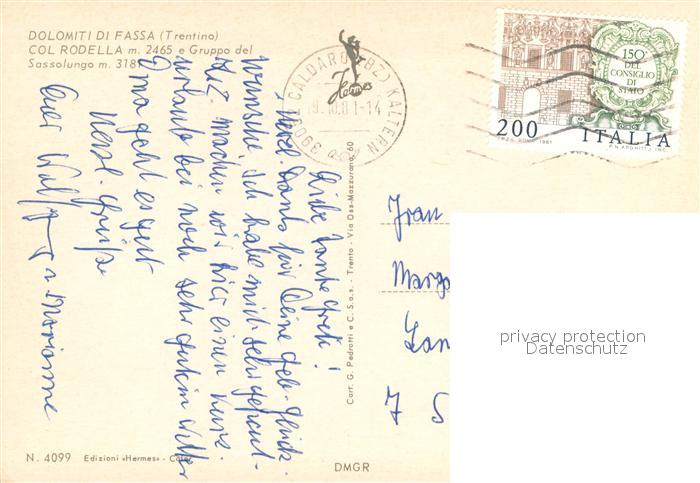 DOLOMITI DI FASSA (Trentino)
COL RODELLA m. 2465 e Gruppo del
Sassolungo m. 318
Hermes
39052 CALDARO (BZ) KALTERN
19.10.81-14
150° DEL CONSIGLIO DI STATO
200 ITALIA
I.P.Z.S. ROMA 1981
Liebe Tante Gretl!
Vielen Dank für Deine geb. Glück-
wünsche, ich habe mich sehr gefreut.
Z.Z. machen wir hier einen Kurz-
urlaub bei noch sehr gutem Wetter
Oma geht es gut
Herzl. Grüße
Euer Wolfgang u. Marianne
Cart. G. Pedrotti e C. S.a.s. - Trento - Via Oss-Mazzurana, 60
Frau
Marga
privacy protection
Datenschutz
N. 4099 Edizioni «Hermes»
DMGR